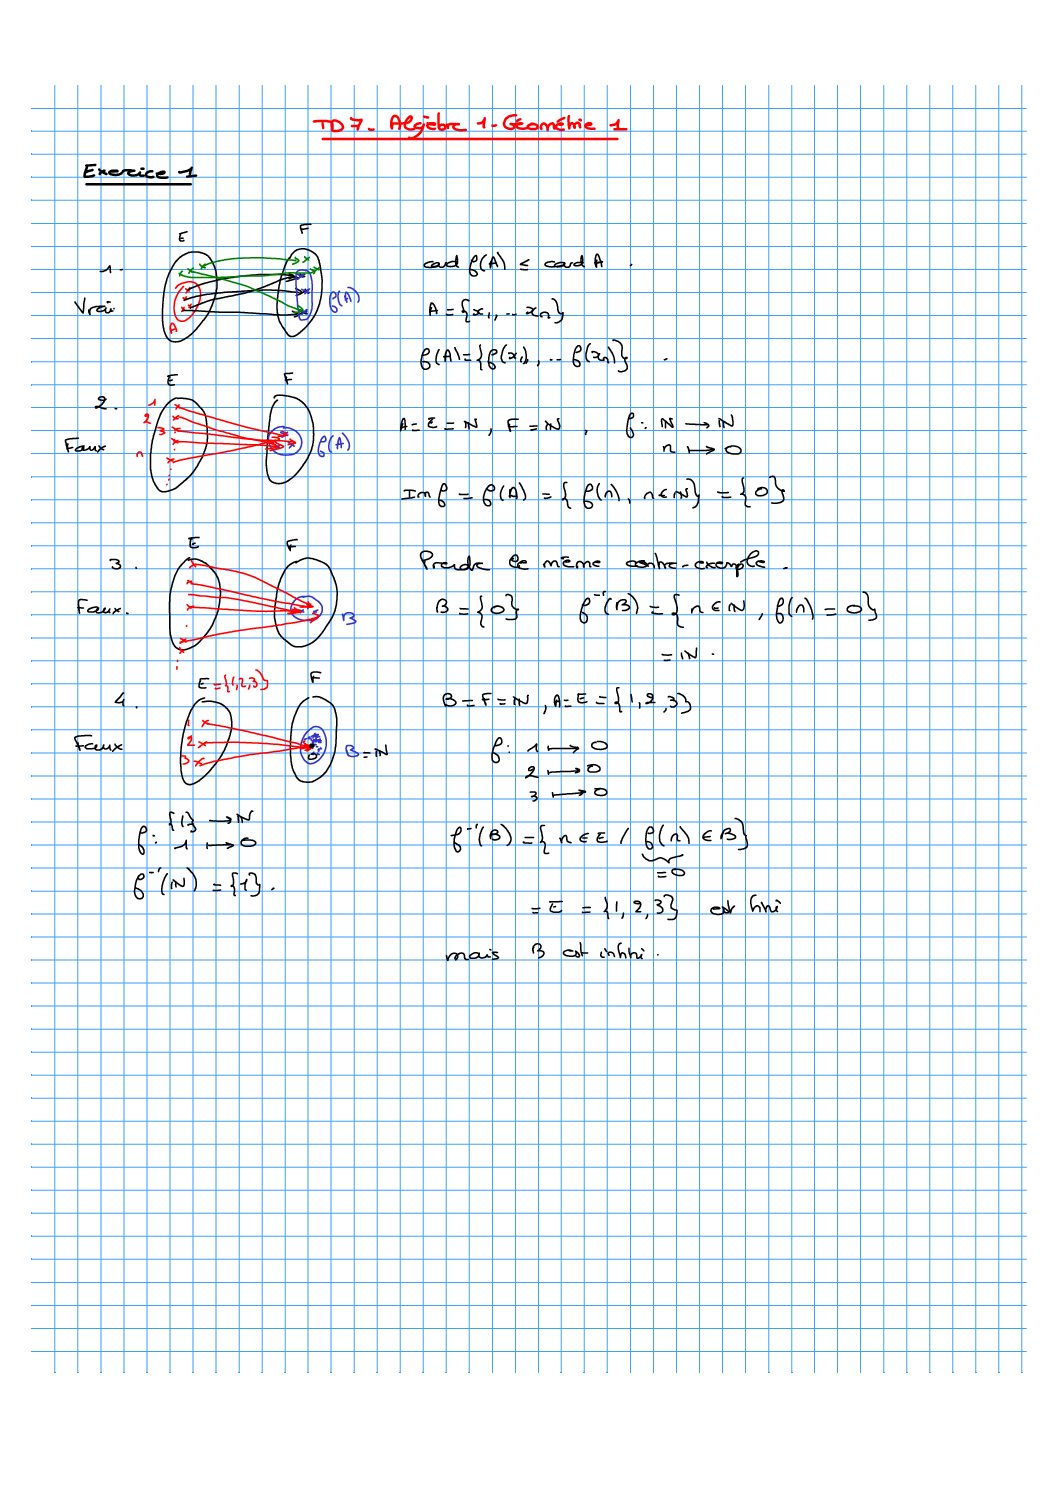 TD 7 - Algèbre 1 - Géométrie 1
Exercice 1
1.
Vrai
E F
A
f(A)
card f(A) ≤ card A.
A = {x₁, .. xₙ}
f(A) = {f(x₁), .. f(xₙ)}.
2.
Faux
E F
1
2
3
n
f(A)
A = E = ℕ, F = ℕ, f: ℕ → ℕ
n ↦ 0
Im f = f(A) = {f(n), n ∈ ℕ} = {0}
3.
Faux.
E F
B
Prendre le même contre-exemple.
B = {0} f⁻¹(B) = {n ∈ ℕ, f(n) = 0}
= ℕ.
4.
Faux
E = {1,2,3} F
1
2
3
0
B = ℕ
B = F = ℕ, A = E = {1,2,3}
f: 1 ↦ 0
2 ↦ 0
3 ↦ 0
f: {1} → ℕ
1 ↦ 0
f⁻¹(ℕ) = {1}.
f⁻¹(B) = {n ∈ E / f(n) ∈ B}
= 0
= E = {1, 2, 3} est fini
mais B est infini.